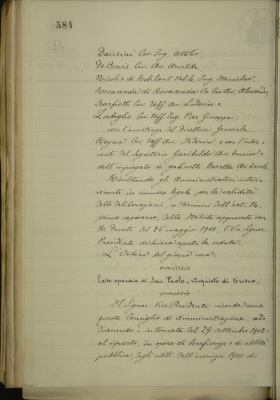 584
Daccini Cav. Ing. Attilio,
De Benis Cav. Avv. Aristide,
Nicolis di Robilant Nobile Ing. Stanislao,
Rovasenda di Rovasenda
Scarfiotti Cav. Uff. Avv. Lodovico e
Cav. Uff. Ing. Pier Giuseppe;
con l'assistenza del Direttore Generale
Cav. Uff. Avv. Federico e con l'inter-
vento del Segretario Garibaldi
di gabinetto
Risultando gli Amministratori inter-
venuti in numero legale per la validità
delle deliberazioni, a termini dell'art. 14,
primo capoverso, dello Statuto approvato con
R. Decreto del 26 maggio 1901, il Signor
Presidente dichiara aperta la seduta.
L'Ordine del giorno reca:
omissis
Case operaie di San Paolo - Acquisto di terreno,
omissis
Il Signor Vice Presidente ricorda come
questo Consiglio di Amministrazione, ad-
divenendo in tornata del 29 settembre 1902
al riparto, in opere di beneficenza e di utilità
pubblica, degli utili dell'esercizio 1901 di